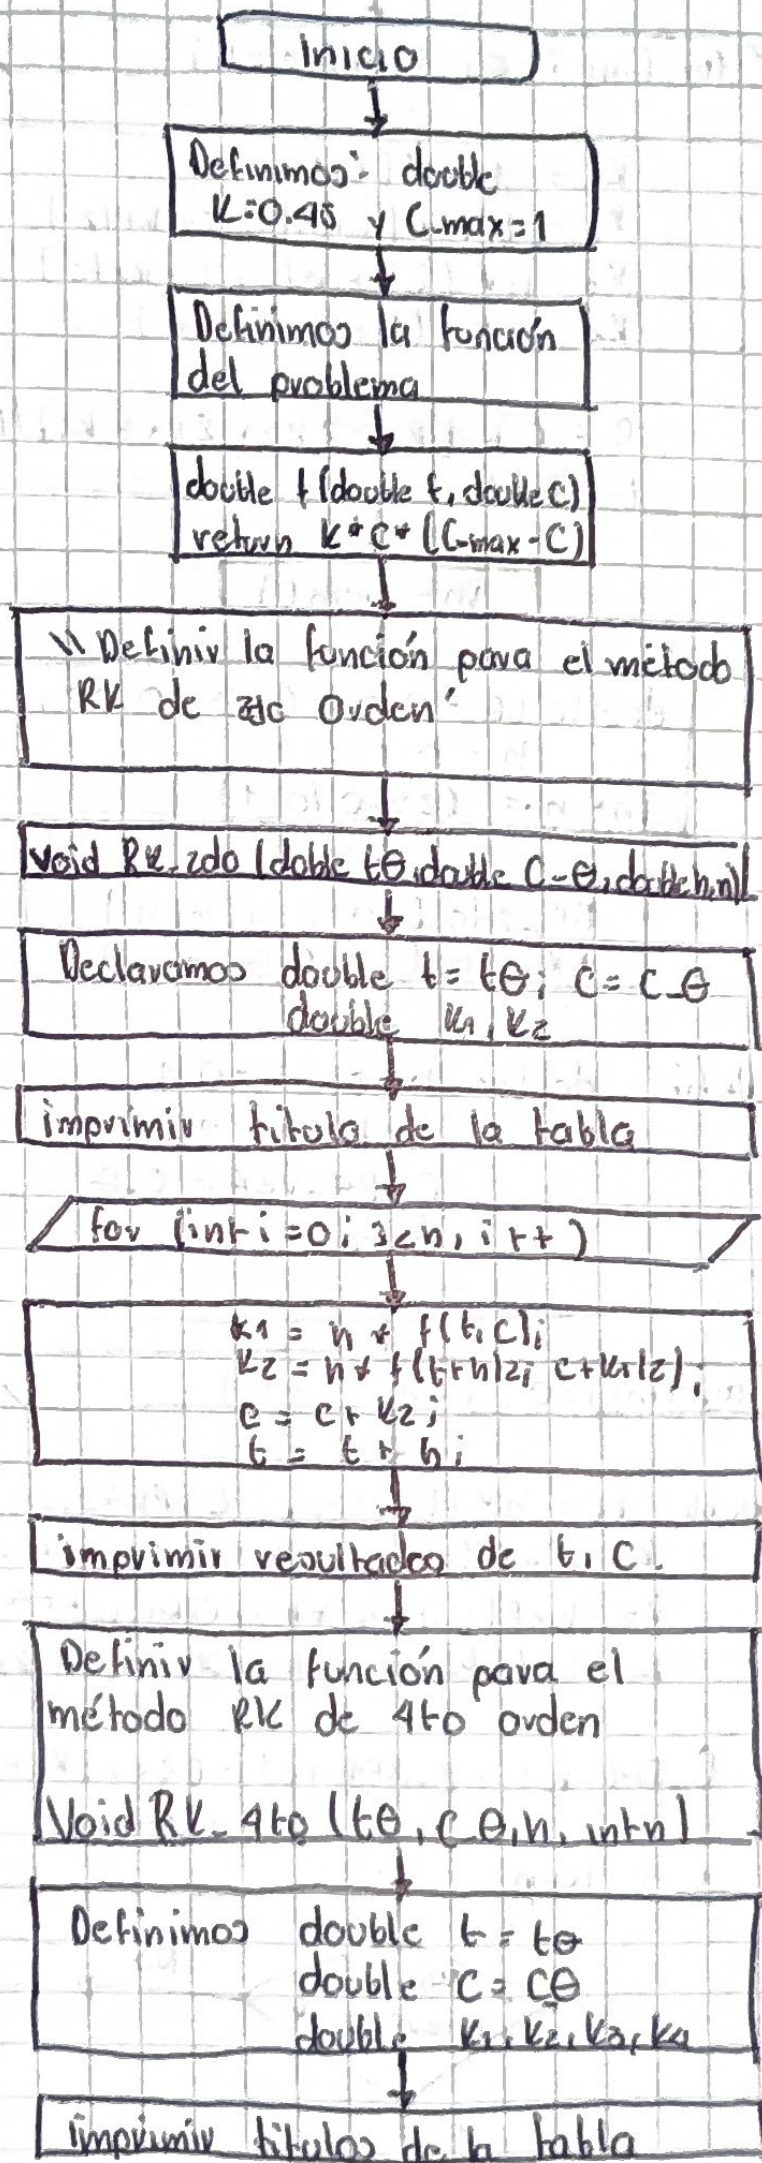 Inicio
Definimos: double
K=0.45 y C_max=1
Definimos la función
del problema
double f(double t, double C)
return K*C*(C_max-C)
\\ Definir la función para el método
RK de 2do Orden'
void RK_2do (doble t0, double C_0, double h, n)
Declaramos double t = t0; C = C_0
double k1, k2
imprimir titulo de la tabla
for (int i = 0; i < n, i++)
k1 = h * f(t, c);
k2 = h * f(t+h/2; c+k1/2);
c = c + k2;
t = t + h;
imprimir resultados de t, C.
Definir la función para el
método RK de 4to orden
Void RK_4to (t0, C_0, h, int n)
Definimos double t = t0
double C = C_0
double k1, k2, k3, k4
imprimir titulos de la tabla